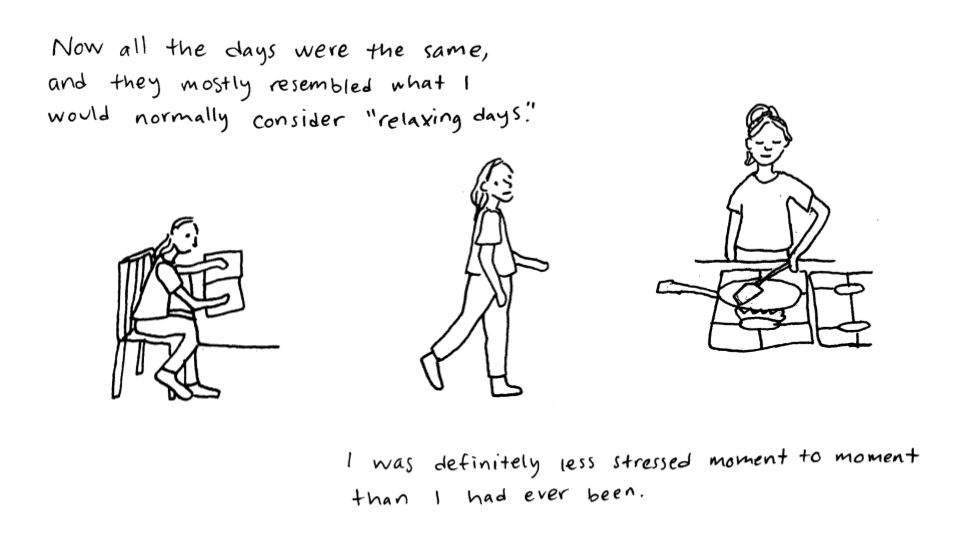 Now all the days were the same,
and they mostly resembled what I
would normally consider "relaxing days."
I was definitely less stressed moment to moment
than I had ever been.